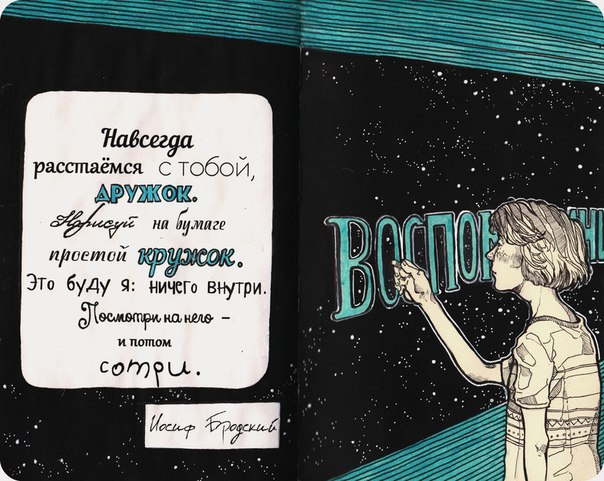 Навсегда
расстаёмся с тобой,
дружок.
Нарисуй на бумаге
простой кружок.
Это буду я: ничего внутри.
Посмотри на него –
и потом
сотри.
Иосиф Бродский
Воспон ни